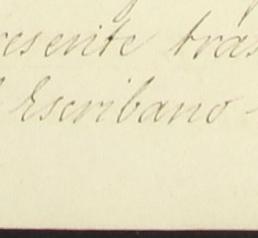 resente tras
Escribano -